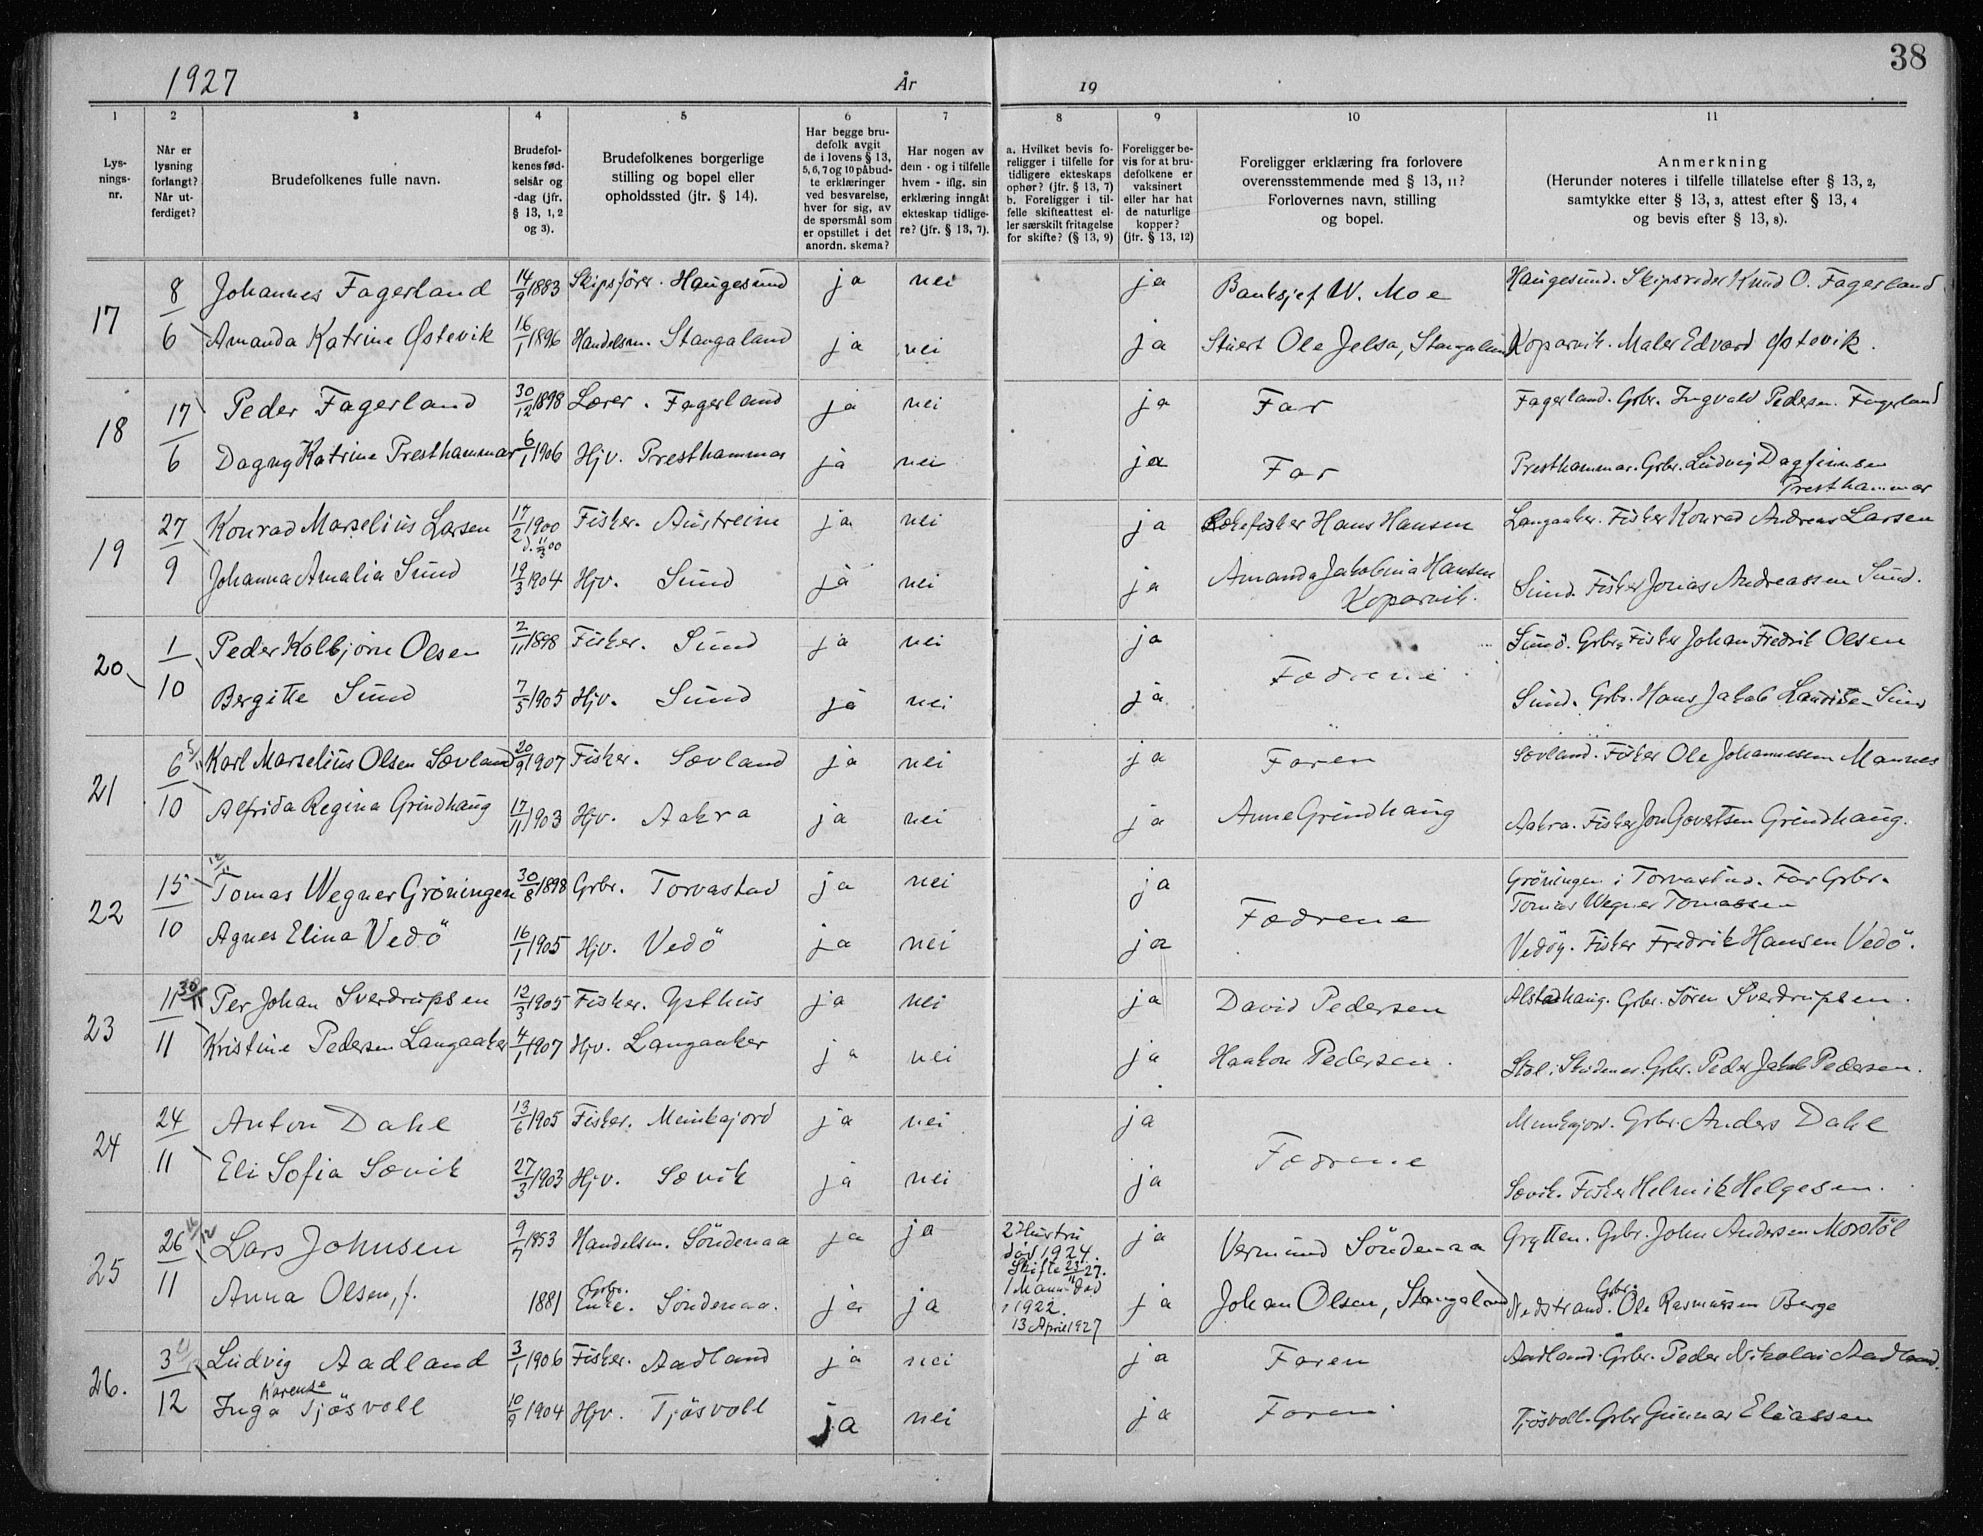 38
1927 År
19
1 2 3 4 5 6 7 8 9 10 11
Lys-
nings-
nr.
Når er
lysning
forlangt?
Når ut-
ferdiget?
Brudefolkenes fulle navn.
Brudefol-
kenes fød-
selsår og
-dag (jfr.
§ 13, 1, 2
og 3).
Brudefolkenes borgerlige
stilling og bopel eller
opholdssted (jfr. § 14).
Har begge bru-
defolk avgit
de i lovens § 13,
5, 6, 7 og 10 påbud-
te erklæringer
ved besvarelse,
hver for sig, av
de spørsmål som
er opstillet i det
anordn. skema?
Har nogen av
dem - og i tilfelle
hvem - iflg. sin
erklæring inngåt
ekteskap tidlige-
re? (jfr. § 13, 7).
a. Hvilket bevis fo-
religger i tilfelle for
tidligere ekteskaps
ophør? (jfr. § 13, 7)
b. Foreligger i til-
felle skifteattest el-
ler særskilt fritagelse
for skifte? (§ 13, 9)
Foreligger be-
vis for at bru-
defolkene er
vaksinert
eller har hat
de naturlige
kopper?
(jfr. § 13, 12)
Foreligger erklæring fra forlovere
overensstemmende med § 13, 11?
Forlovernes navn, stilling
og bopel.
Anmerkning
(Herunder noteres i tilfelle tillatelse efter § 13, 2,
samtykke efter § 13, 3, attest efter § 13, 4
og bevis efter § 13, 8).
17 8/6 Johannes Fagerland 14/9 1883 Skipsfører. Haugesund ja nei ja Banksjef W. Moe Haugesund. Skipsreder Knud O. Fagerland
Amanda Katrine Østevik 16/1 1896 Handelsm. Stangaland ja nei ja Stuert Ole Jelsa, Stangaland Koparvik. Maler Edvard Østevik.
18 17/6 Peder Fagerland 30/12 1898 Lærer. Fagerland ja nei ja Far Fagerland. Grbr. Ingvald Pedersen Fagerland
Dagny Katrine Presthammar 6/1 1906 Hjv. Presthammar ja nei ja Far Presthammar. Grbr. Ludvig Dagfinnsen
Presthammar
19 27/9 Konrad Marselius Larsen 17/2 1900 Fisker. Austreim ja nei ja Hans Hansen Langaaker. Fisker Konrad Andreas Larsen
d. 11/3 00
Johanna Amalia Sund 19/3 1904 Hjv. Sund ja nei ja Amanda Jakobina Hansen Sund. Fisker Jonas Andreassen Sund.
Koparvik.
20 1/10 Peder Kolbjørn Olsen 2/11 1898 Fisker. Sund ja nei ja Fædrene Sund. Grbr. Fisker Johan Fredrik Olsen
Bergitte Sund 7/5 1905 Hjv. Sund ja nei ja Sund. Grbr. Hans Jakob Lauritsen Sund
21 6/10 Karl Marselius Olsen Sævland 20/9 1907 Fisker. Sævland ja nei ja Faren Sævland. Fisker Ole Johannessen Mannes
Alfrida Regina Grindhaug 17/11 1903 Hjv. Aakra ja nei ja Anne Grindhaug Aakra. Fisker Jon Govertsen Grindhaug.
22 15/10 Tomas Wegner Grøningen 30/8 1898 Grbr. Torvastad ja nei ja Fædrene Grøningen i Torvastad. Far Grbr.
Tomas Wegner Tomassen
Agnes Elina Vedö 16/1 1905 Hjv. Vedö ja nei ja Vedöy. Fisker Fredrik Hansen Vedö.
23 11/11 30/11 Per Johan Sverdrupsen 12/3 1905 Fisker. Ysthus ja nei ja David Pedersen Alstadhaug. Grbr. Søren Sverdrupsen.
Kristine Pedersen Langaaker 4/1 1907 Hjv. Langaaker ja nei ja Haakon Pedersen. Stol i Skudenes. Grbr. Peder Jakob Pedersen.
24 24/11 Anton Dahl 13/6 1905 Fisker. Munkajord ja nei ja Fædrene Munkajord. Grbr. Anders Dahl
Eli Sofia Sævik 27/3 1903 Hjv. Sævik ja nei ja Sævik. Fisker Helmik Helgesen.
25 26/11 Lars Johnsen 9/7 1853 Handelsm. Söndenaa ja ja 2 Hustru ja Vermund Söndenaa Grytten. Grbr. John Andersen Morstöl
död 1924.
Skifte 23/11 27.
Anna Olsen, f. 1881 Grbr. Enke. Söndenaa. ja ja 1 Mann död ja Johan Olsen, Stangaland Nedstrand. Grbr. Ole Rasmussen Berge
1922.
13 April 1927
26. 3/12 Ludvig Aadland 3/1 1906 Fisker. Aadland ja nei ja Faren Aadland. Grbr. Peder Nikolai Aadland.
Inga Karense Tjösvoll 10/9 1904 Hjv. Tjösvoll ja nei ja Faren Tjösvoll. Grbr Gunnar Eliassen